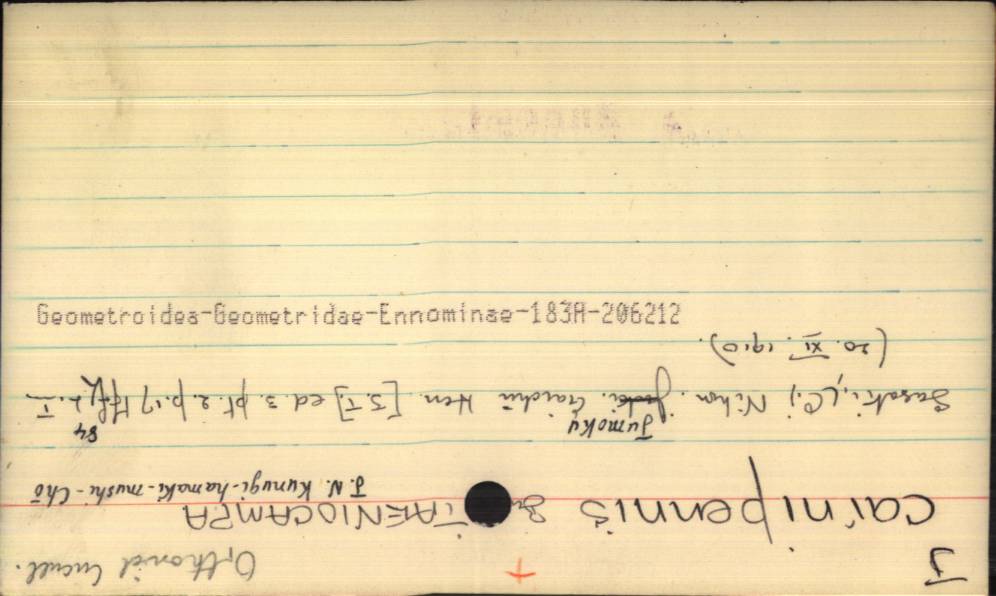 J
Orthosid Cucull.
carnipennis Btl TAENIOCAMPA
J.N. Kunugi-hamaki-mushi-Chō
Jumoku 84
Sasaki, (C.) Nihon. Gaichū Hen [S.T.] ed. 3. pt. 2. p. 17
(20. XI. 1910).
Geometroidea-Geometridae-Ennominae-183A-206212